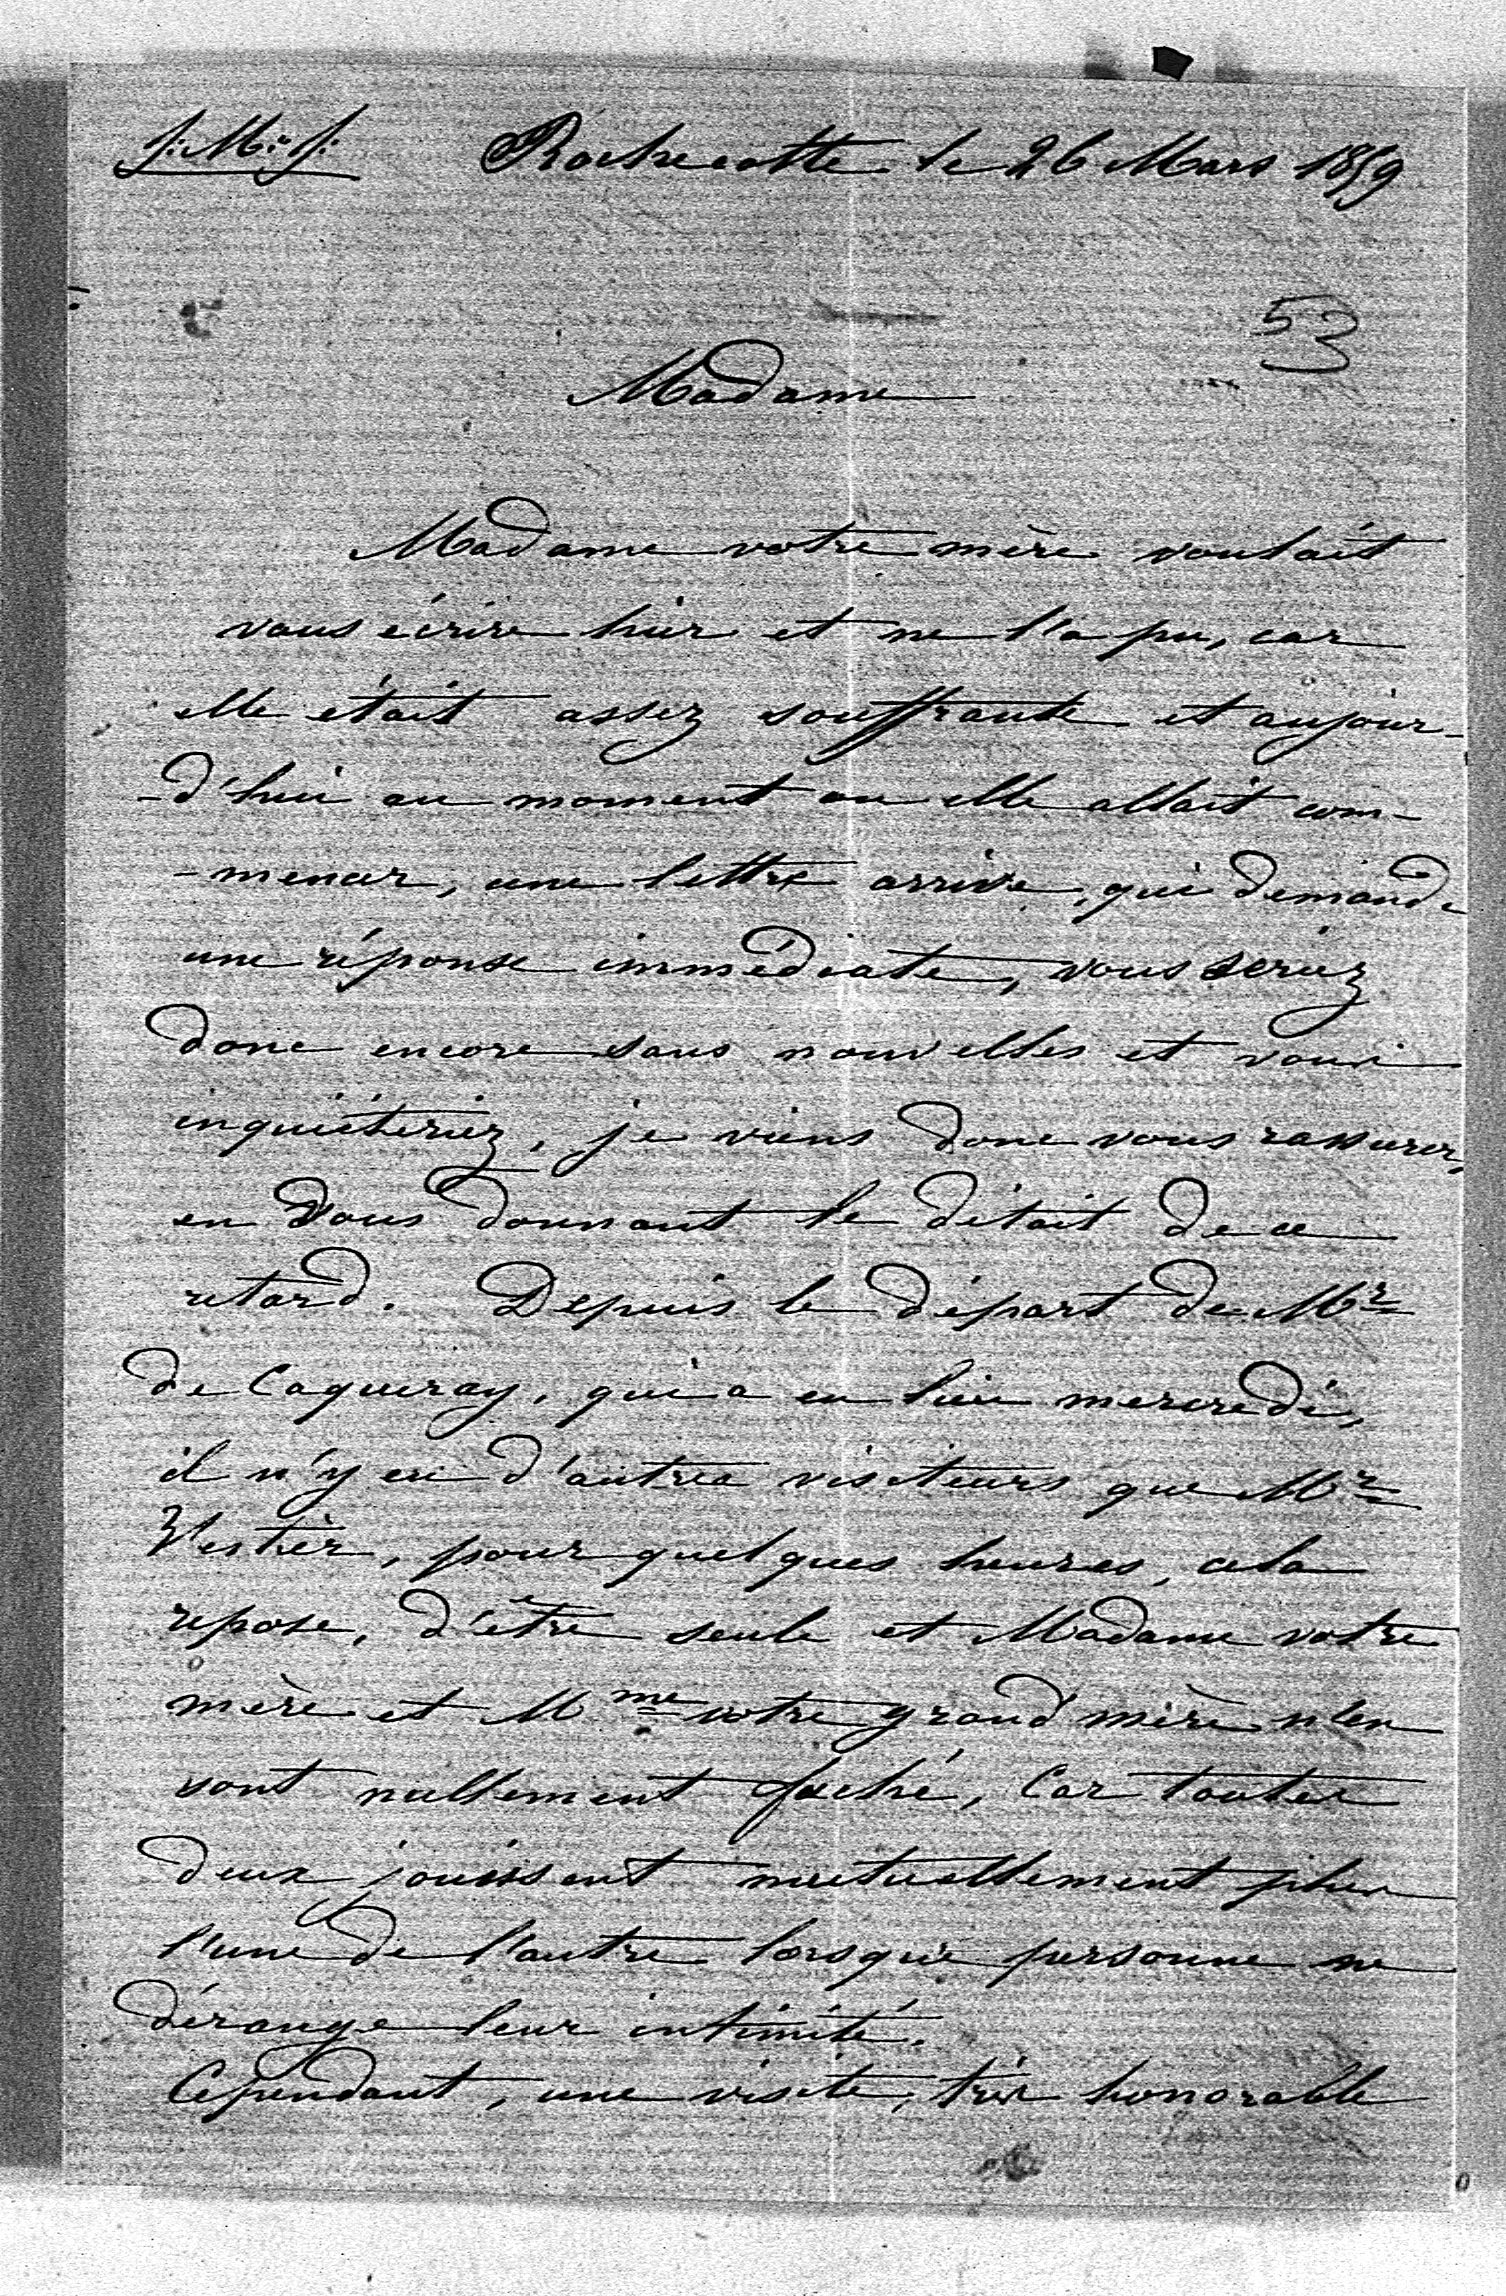 J. M. J. Rochecotte le 26 Mars 1859
53
Madame
Madame votre mère voulait
vous écrire hier et ne l'a pu, car
elle était assez souffrante et aujour-
-d'hui au moment ou elle allait com-
-mencer, une lettre arrive, qui demande
une réponse immédiate, vous seriez
donc encore sans nouvelles et vous
inquiéteriez, je viens donc vous rassurer,
en vous donnant le détail de ce
retard. Depuis le départ de Mr
de Caqueray, qui a eu lieu mercredi,
il n'y eu d'autres visiteurs que Mr
Vestier, pour quelques heures, cela
repose, d'être seule et Madame votre
mère et Mme votre grand mère n'en
sont nullement faché, Car toutes
deux jouissent mutuellement plus
l'une de l'autre lorsque personne ne
dérange leur intimité.
Cependant, une visite, très honorable